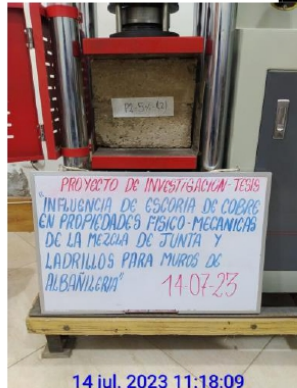 PROYECTO DE INVESTIGACION-TESIS
"INFLUENCIA DE ESCORIA DE COBRE
EN PROPIEDADES FISICO-MECANICAS
DE LA MEZCLA DE JUNTA Y
LADRILLOS PARA MUROS DE
ALBAÑILERIA"
14-07-23
14 jul. 2023 11:18:09